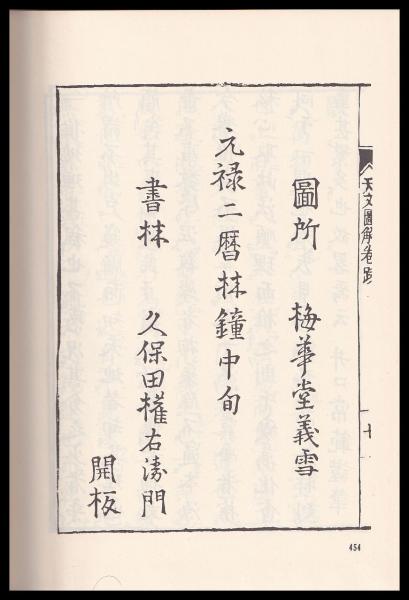 天文圖解卷跋
十
圖所 梅華堂義雪
元禄二暦林鐘中旬
書林 久保田權右衛門
開板
454